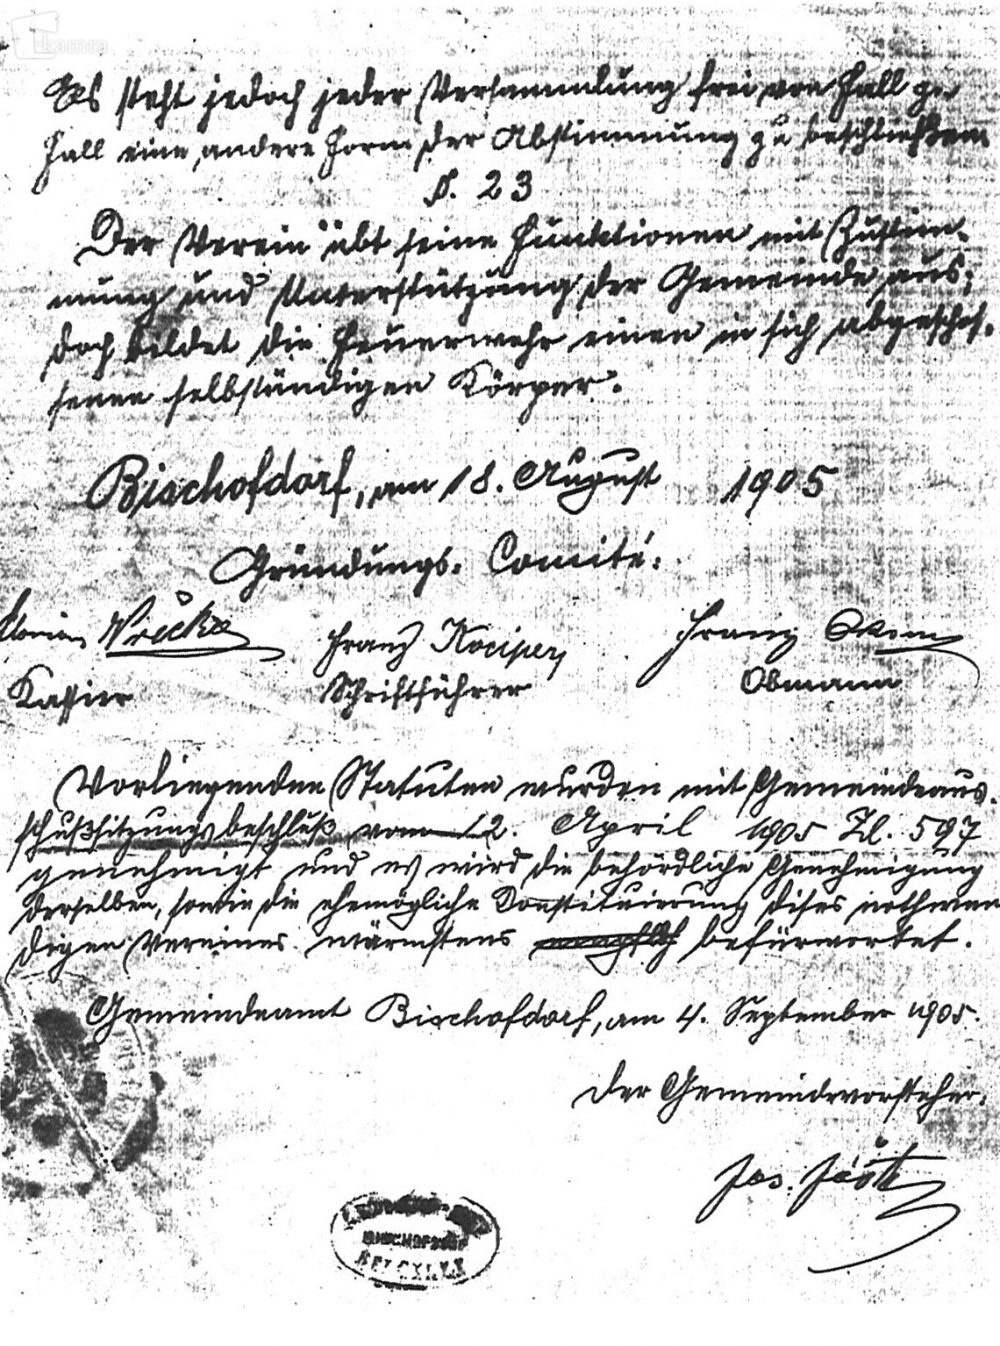 kamra
Es steht jedoch jeder Versammlung frei von Fall zu
Fall eine andere Form der Abstimmung zu beschließen.
§. 23
Der Verein übt seine Funktionen mit Zustim-
mung und Unterstützung der Gemeinde aus;
doch bildet die Feuerwehr einen in sich abgeschlos-
senen selbständigen Körper.
Bischofdorf, am 18. August 1905
Gründungs-Comité:
Florian Franz Kociper Franz
Kassier Schriftführer Obmann
Vorliegenden Statuten wurden mit Gemeindeaus-
schußsitzungsbeschluß vom 12. April 1905 Zl. 597
genehmigt und es wird die behördliche Genehmigung
derselben, sowie die ehemögliche Constituierung dises nothwen
digen Vereines wärmstens befürwortet.
Gemeindeamt Bischofdorf, am 4. September 1905.
Der Gemeindevorsteher.
Jos.
BISCHOFDORF